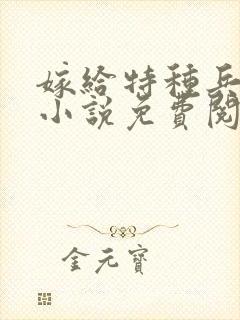 嫁給特種兵
小說免費閱
金元寶